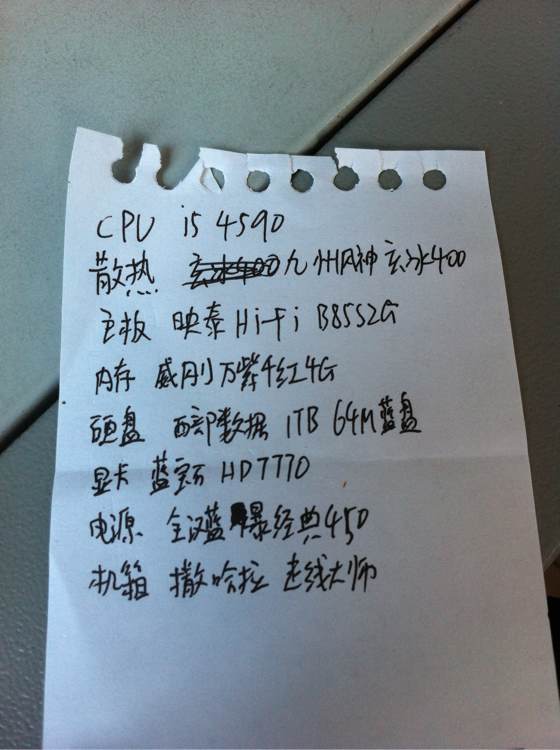 CPU i5 4590
散热 九州风神玄冰400
主板 映泰Hi-fi B85S2G
内存 威刚万紫千红4G
硬盘 西部数据 1TB 64M蓝盘
显卡 蓝宝石 HD7770
电源 全汉蓝暴经典450
机箱 撒哈拉 走线大师